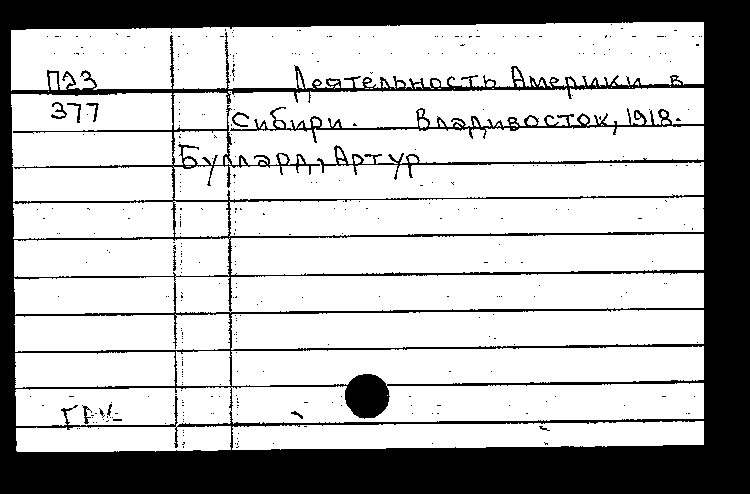 П23 Деятельность Америки в
377 Сибири. Владивосток, 1918.
Буллард, Артур